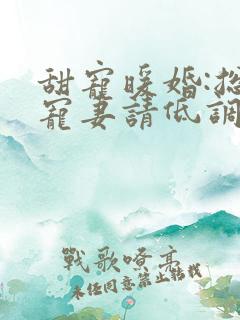 甜寵暖婚:總
寵妻請低調
戰歌嘹亮
未經同意禁止轉載